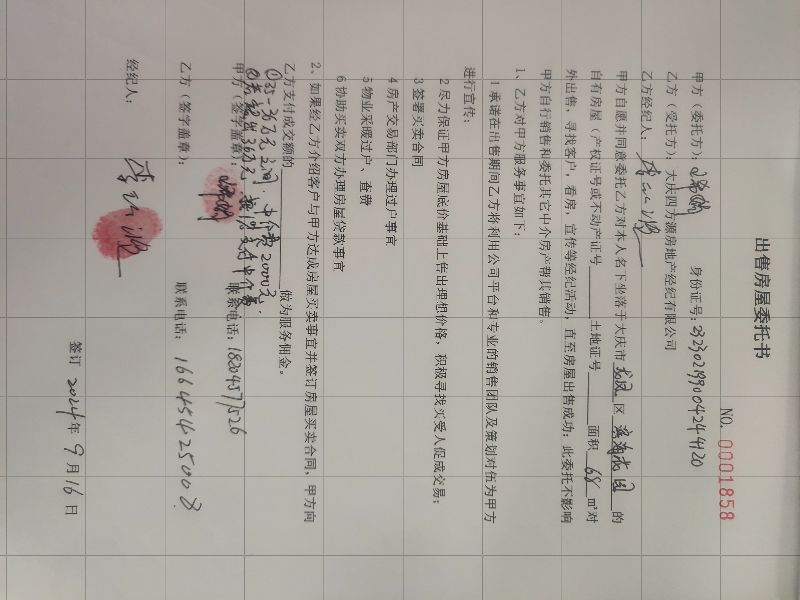 出售房屋委托书
NO. 0001858
甲方（委托方）： 身份证号：232302199004244120
乙方（受托方）：大庆四方源房地产经纪有限公司
乙方经纪人：
甲方自愿并同意委托乙方对本人名下坐落于大庆市龙凤区的
自有房屋（产权证号或不动产证号 土地证号 面积 68 ㎡对
外出售，寻找客户，看房，宣传等经纪活动，直至房屋出售成功；此委托不影响
甲方自行销售和委托其它中介房产帮其销售。
1、乙方对甲方服务事宜如下：
1 承诺在出售期间乙方将利用公司平台和专业的销售团队及策划对伍为甲方
进行宣传：
2 尽力保证甲方房屋底价基础上传出理想价格，积极寻找买受人促成交易；
3 签署买卖合同
4 房产交易部门办理过户事宜
5 物业采暖过户、查费
6 协助买卖双方办理房屋贷款事宜
2、如果经乙方介绍客户与甲方达成房屋买卖事宜并签订房屋买卖合同，甲方向
乙方支付成交额的 做为服务佣金。
①35-36万元之间，中介费2000元.
甲方（签字盖章）： 联系电话：18204577526
乙方（签字盖章）： 联系电话：16645425008
经纪人：
签订 2024年9月16日